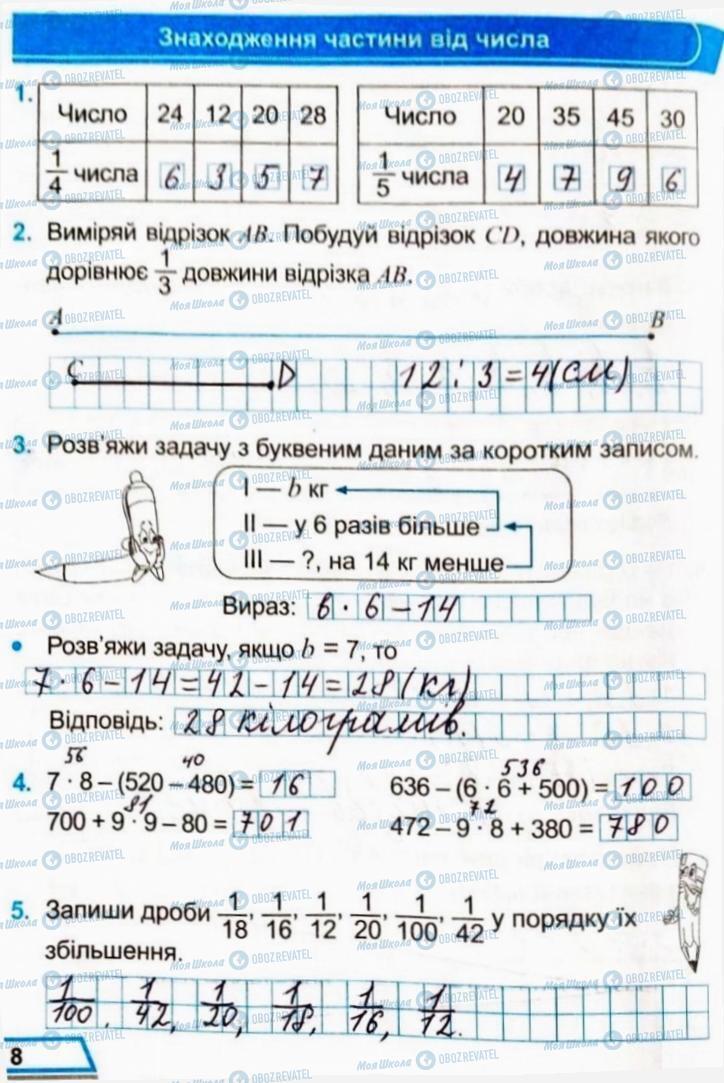 Знаходження частини від числа
1.
Число 24 12 20 28
1/4 числа 6 3 5 7
Число 20 35 45 30
1/5 числа 4 7 9 6
2. Виміряй відрізок AB. Побудуй відрізок CD, довжина якого
дорівнює 1/3 довжини відрізка AB.
A B
C D 12 : 3 = 4 (см)
3. Розв'яжи задачу з буквеним даним за коротким записом.
I — b кг
II — у 6 разів більше
III — ?, на 14 кг менше
Вираз: b · 6 – 14
• Розв'яжи задачу, якщо b = 7, то
7 · 6 – 14 = 42 – 14 = 28 (кг)
Відповідь: 28 кілограмів.
56 40
4. 7 · 8 – (520 – 480) = 16
536
636 – (6 · 6 + 500) = 100
81
700 + 9 · 9 – 80 = 701
72
472 – 9 · 8 + 380 = 780
5. Запиши дроби 1/18, 1/16, 1/12, 1/20, 1/100, 1/42 у порядку їх
збільшення.
1/100, 1/42, 1/20, 1/18, 1/16, 1/12.
8
Моя Школа OBOZREVATEL